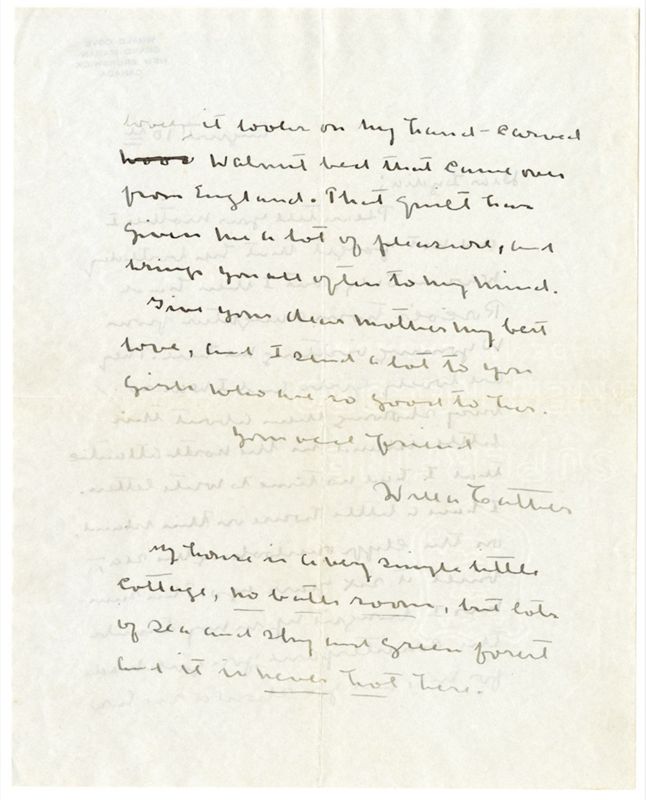 lovely it looks on my hand-carved
walnut bed that came over
from England. That quilt has
given me a lot of pleasure, and
brings you all often to my mind.
Give your dear mother my best
love, and I send a lot to you
girls who are so good to her.
Your old friend
Willa Cather
My house is a very simple little
cottage, no bath room, but lots
of sea and sky and green forest
and it is never hot here.